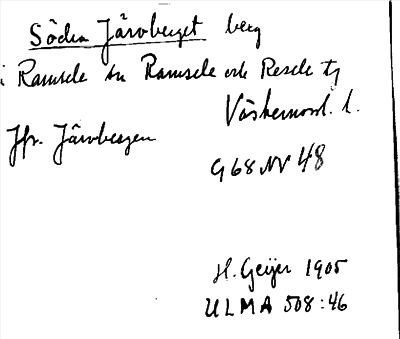 Södra Järvberget berg
i Ramsele sn Ramsele och Resele tg
Västernorrl. l.
Jfr. Järvbergen
G 68 NV 48
H. Geijer 1905
ULMA 508:46